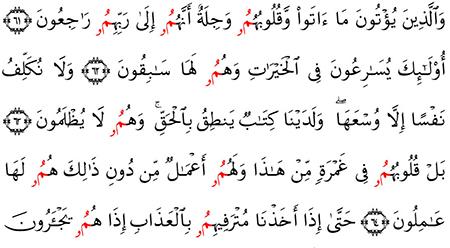 وَالَّذِينَ يُؤْتُونَ مَا ءَاتَوا۟ وَّقُلُوبُهُمُۥ وَجِلَةٌ أَنَّهُمُۥ إِلَىٰ رَبِّهِمُۥ رَاجِعُونَ ٦١
أُو۟لَـٰٓئِكَ يُسَـٰرِعُونَ فِى الْخَيْرَاتِ وَهُمُۥ لَهَا سَـٰبِقُونَ ٦٢ وَلَا نُكَلِّفُ
نَفْسًا إِلَّا وُسْعَهَا ۖ وَلَدَيْنَا كِتَـٰبٌ يَنطِقُ بِالْحَقِّ ۚ وَهُمُۥ لَا يُظْلَمُونَ ٦٣
بَلْ قُلُوبُهُمُۥ فِى غَمْرَةٍ مِّنْ هَـٰذَا وَلَهُمُۥ أَعْمَـٰلٌ مِّن دُونِ ذَٰلِكَ هُمُۥ لَهَا
عَـٰمِلُونَ ٦٤ حَتَّىٰ إِذَا أَخَذْنَا مُتْرَفِيهِمُۥ بِالْعَذَابِ إِذَا هُمُۥ يَجْـَٔرُونَ